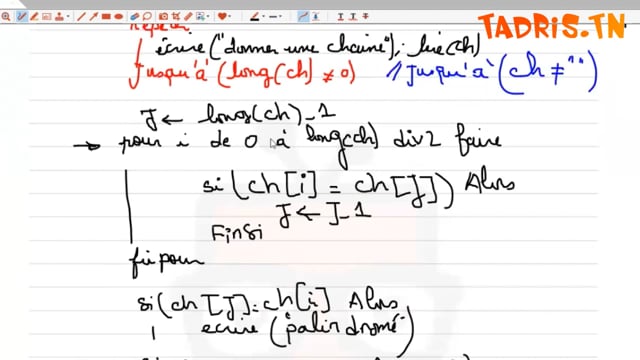 TADRIS.TN
Répéter
écrire("donner une chaine"), lire(ch)
Jusqu'à (long(ch) ≠ 0) // Jusqu'à (ch ≠ "")
J ← long(ch)-1
→ pour i de 0 à long(ch) div 2 faire
si (ch[i] = ch[J]) Alors
J ← J-1
Finsi
fin pour
si (ch[J]=ch[i] Alors
ecrire ("palindrome"